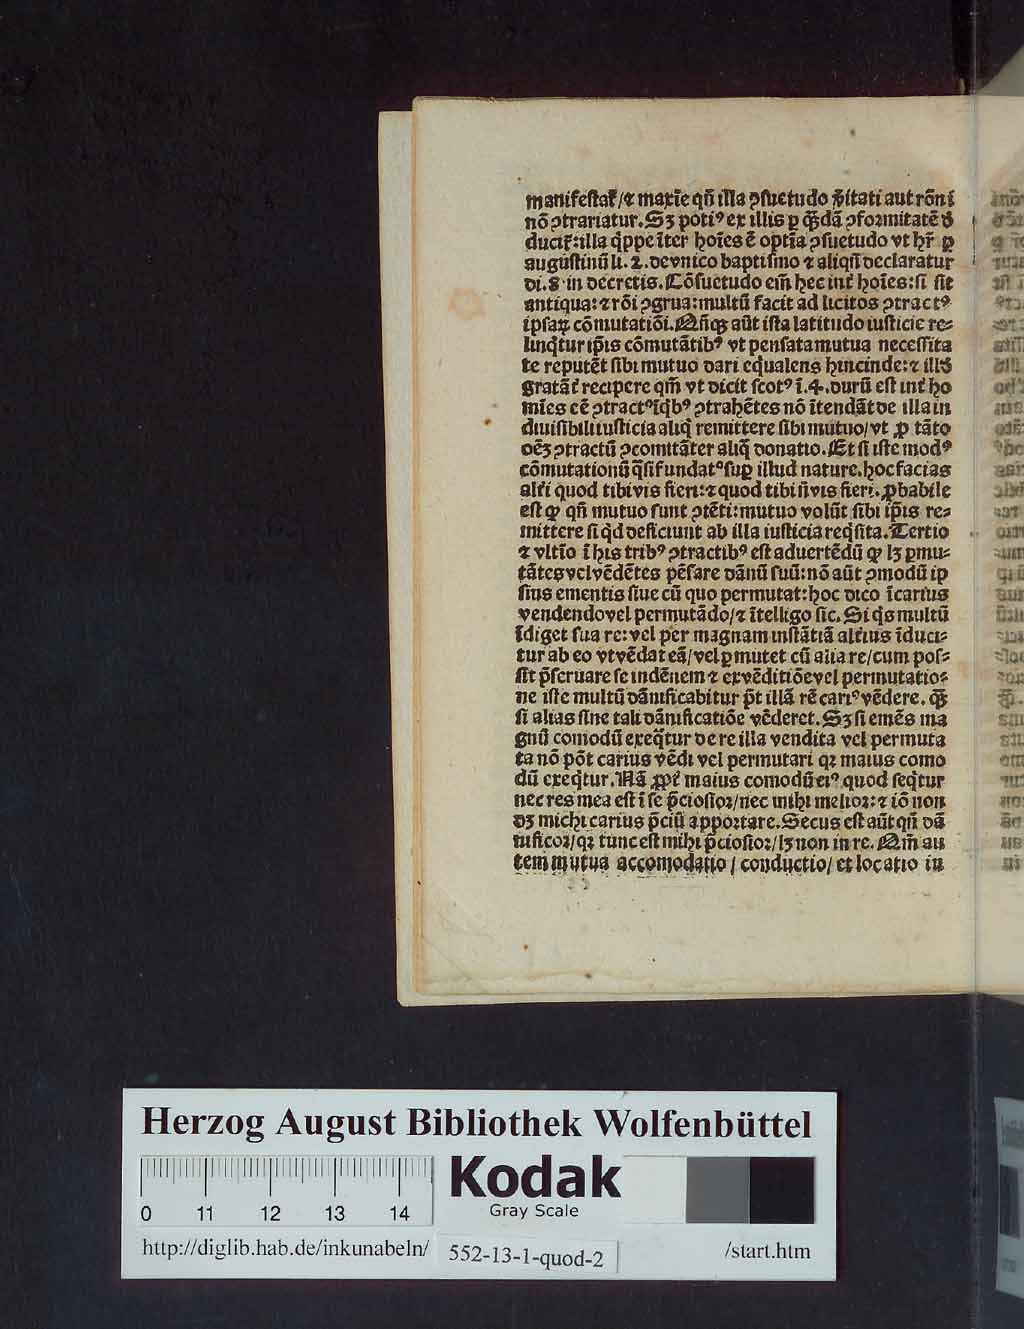 manifestat᷑/⁊ maxīe qn̄ illa ꝯsuetudo v̄itati aut rōni
nō ꝯtrariatur. Sꝫ poti⁹ ex illis ꝑ q̄ꝫdā ꝯformitatē
ducit᷑: illa q̄ppe īter hoīes ē optīa ꝯsuetudo vt hr̄ ꝑ
augustinū li. 2. de vnico baptismo ⁊ aliqn̄ declaratur
di. 8 in decretis. Cōsuetudo em̄ hec int᷑ hoīes: si sit
antiqua: ⁊ rōi ꝯgrua: multū facit ad licitos ꝯtract⁹
ipsaꝝ cōmutatiōi. aūt ista latitudo iusticie re⸗
linq̄tur ip̄is cōmutātib⁹ vt pensata mutua necessita
te reputēt sibi mutuo dari eq̄ualens hincinde: ⁊
gratāt᷑ recipere qm̄ vt dicit scot⁹ ī. 4. durū est int᷑ ho
mīes eē ꝯtract⁹ īq̄b⁹ ꝯtrahētes nō ītendāt de illa in
diuisibili iusticia aliq̄ remittere sibi mutuo/ vt ꝓ tāto
oēꝫ ꝯtractū ꝯcomitāter aliq̄ donatio. Et si iste mod⁹
cōmutationū q̄si fundat⁹ suꝑ illud nature. hoc facias
alt᷑i quod tibi vis fieri: ⁊ quod tibi n̄ vis fieri. ꝓbabile
est ꝙ qn̄ mutuo sunt ꝯtēti: mutuo volūt sibi ip̄is re⸗
mittere si q̄d deficiunt ab illa iusticia req̄sita. Tertio
⁊ vltīo ī his trib⁹ ꝯtractib⁹ est aduertēdū ꝙ lꝫ ꝑmu⸗
tātes vel vēdētes pēsare dānū suū: nō aūt ꝯmodū ip
sius ementis siue cū quo permutat: hoc dico īcarius
vendendo vel permutādo/ ⁊ ītelligo sic. Si q̄s multū
īdiget sua re: vel per magnam instātiā alt᷑ius īduci⸗
tur ab eo vt vēdat eā/ vel ꝑmutet cū alia re/ cum pos⸗
sit p̄seruare se indēnem ⁊ ex vēditiōe vel permutatio⸗
ne iste multū dānificabitur p̄t illā rē cari⁹ vēdere. q̄ꝫ
si alias sine tali dānificatiōe vēderet. Sꝫ si emēs ma
gnū comodū exeq̄tur de re illa vendita vel permuta
ta nō pōt carius vēdi vel permutari qꝛ maius como
dū exeq̄tur. Nā ꝓpt᷑ maius comodū ei⁹ quod seq̄tur
nec res mea est ī se p̄ciosioꝛ/ nec mihi melioꝛ: ⁊ iō non
dꝫ michi carius p̄ciū appoꝛtare. Secus est aūt qn̄ dā
nificoꝛ/ qꝛ tunc est mihi p̄ciosioꝛ/ lꝫ non in re. Qm̄ au
tem mutua accomodatio / conductio/ et locatio iu
Herzog August Bibliothek Wolfenbüttel
0 11 12 13 14
Kodak
Gray Scale
http://diglib.hab.de/inkunabeln/ 552-13-1-quod-2 /start.htm